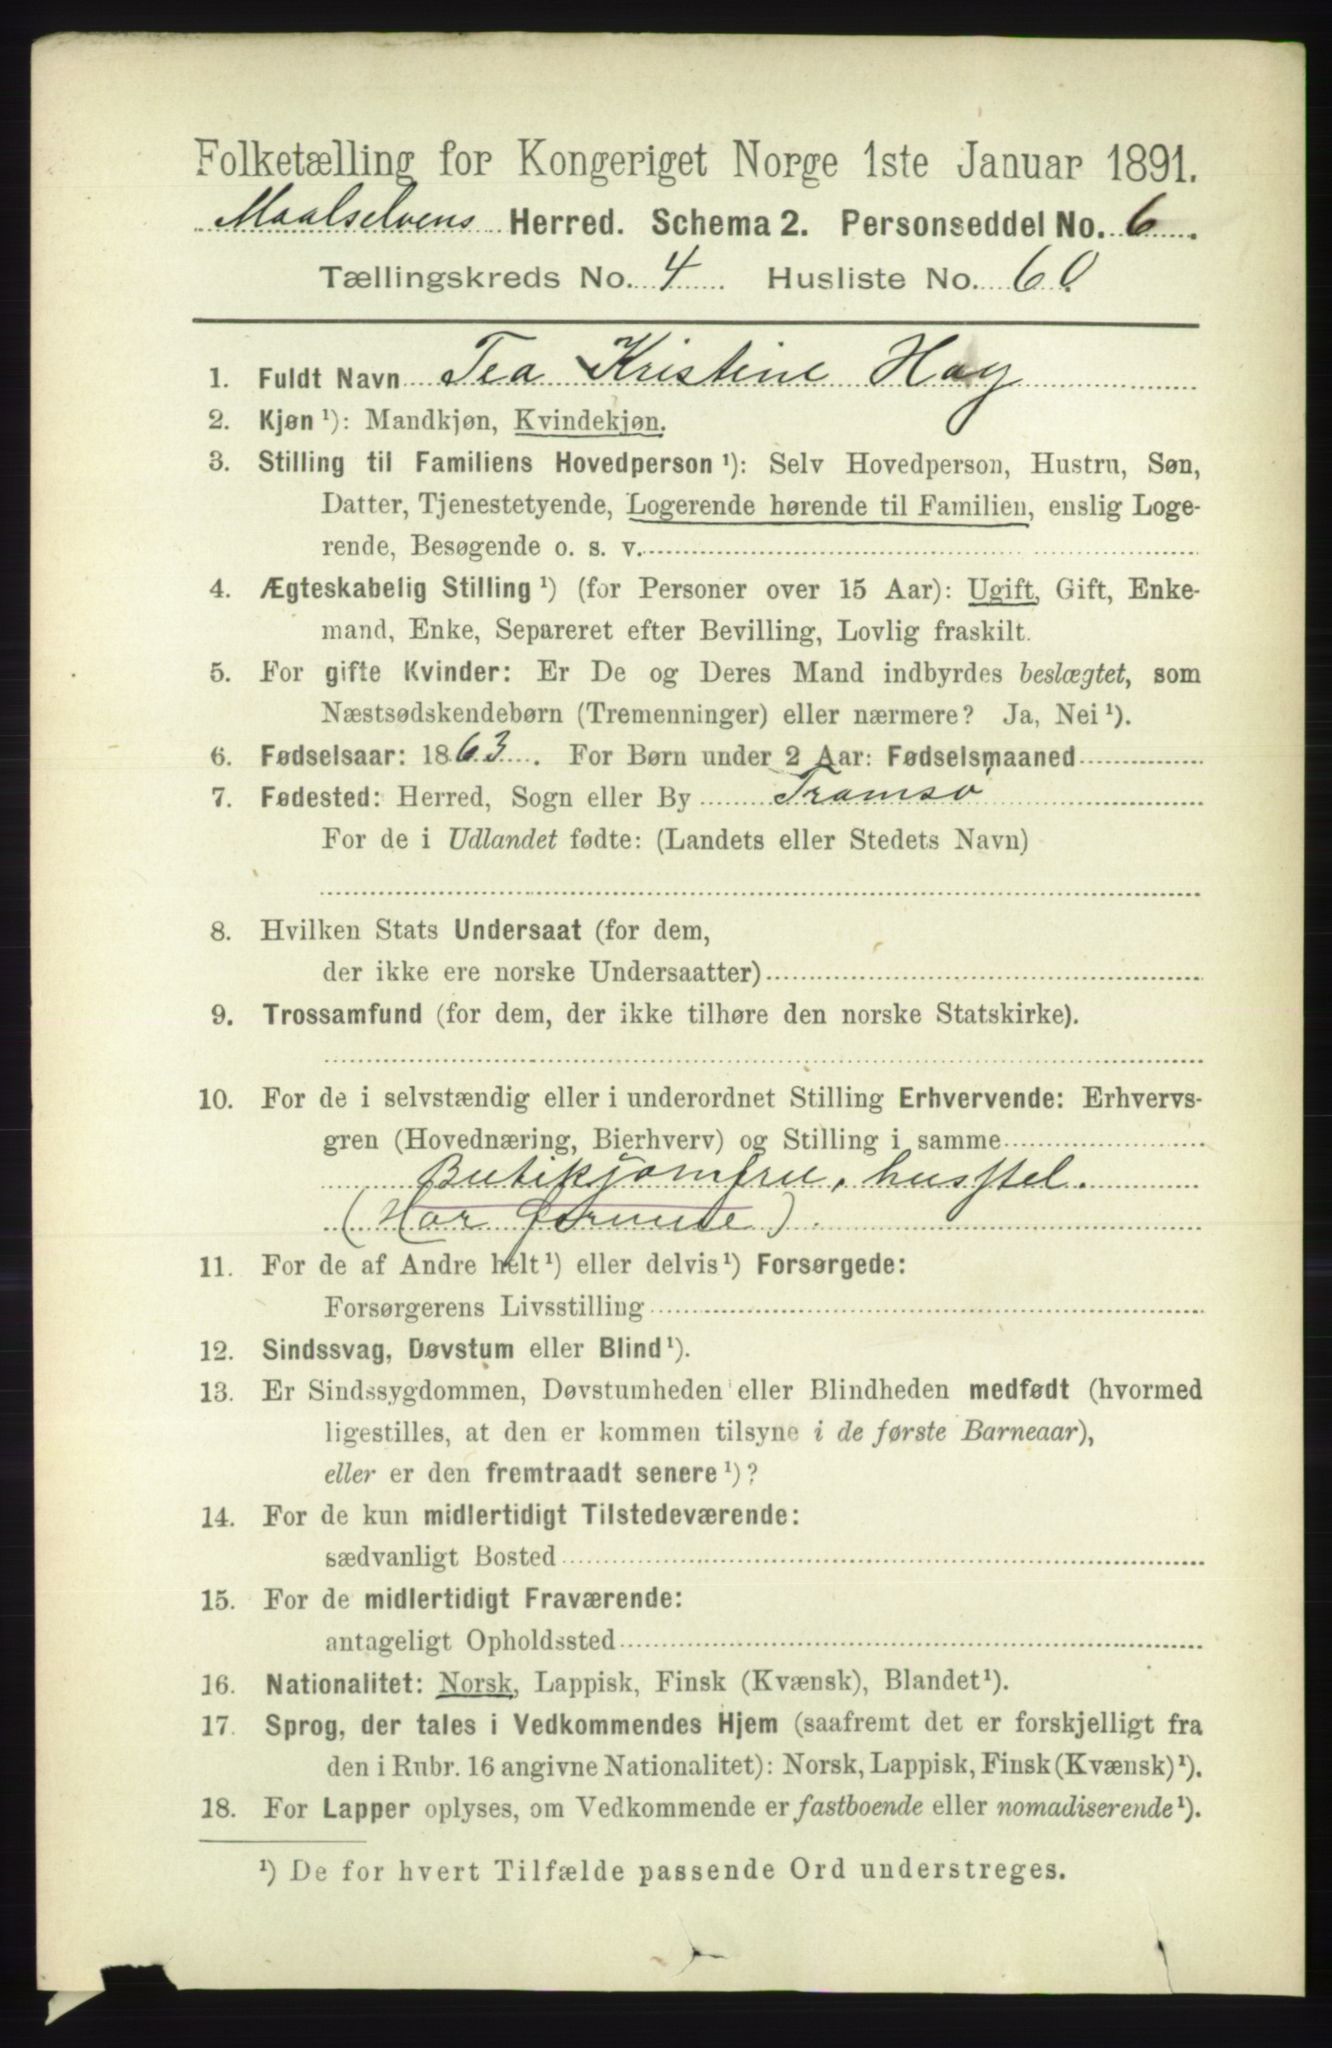 Folketælling for Kongeriget Norge 1ste Januar 1891.
Maalselvens Herred. Schema 2. Personseddel No. 6.
Tællingskreds No. 4 Husliste No. 60.
1. Fuldt Navn Tea Kristine Hay
2. Kjøn ¹): Mandkjøn, Kvindekjøn.
3. Stilling til Familiens Hovedperson ¹): Selv Hovedperson, Hustru, Søn,
Datter, Tjenestetyende, Logerende hørende til Familien, enslig Loge-
rende, Besøgende o. s. v.
4. Ægteskabelig Stilling ¹) (for Personer over 15 Aar): Ugift, Gift, Enke-
mand, Enke, Separeret efter Bevilling, Lovlig fraskilt.
5. For gifte Kvinder: Er De og Deres Mand indbyrdes beslægtet, som
Næstsødskendebørn (Tremenninger) eller nærmere? Ja, Nei ¹).
6. Fødselsaar: 1863. For Børn under 2 Aar: Fødselsmaaned
7. Fødested: Herred, Sogn eller By Tromsø
For de i Udlandet fødte: (Landets eller Stedets Navn)
8. Hvilken Stats Undersaat (for dem,
der ikke ere norske Undersaatter)
9. Trossamfund (for dem, der ikke tilhøre den norske Statskirke).
10. For de i selvstændig eller i underordnet Stilling Erhvervende: Erhvervs-
gren (Hovednæring, Bierhverv) og Stilling i samme
Butikjomfru, husstel.
(Har formue).
11. For de af Andre helt ¹) eller delvis ¹) Forsørgede:
Forsørgerens Livsstilling
12. Sindssvag, Døvstum eller Blind ¹).
13. Er Sindssygdommen, Døvstumheden eller Blindheden medfødt (hvormed
ligestilles, at den er kommen tilsyne i de første Barneaar),
eller er den fremtraadt senere ¹)?
14. For de kun midlertidigt Tilstedeværende:
sædvanligt Bosted
15. For de midlertidigt Fraværende:
antageligt Opholdssted
16. Nationalitet: Norsk, Lappisk, Finsk (Kvænsk), Blandet ¹).
17. Sprog, der tales i Vedkommendes Hjem (saafremt det er forskjelligt fra
den i Rubr. 16 angivne Nationalitet): Norsk, Lappisk, Finsk (Kvænsk) ¹).
18. For Lapper oplyses, om Vedkommende er fastboende eller nomadiserende ¹).
¹) De for hvert Tilfælde passende Ord understreges.